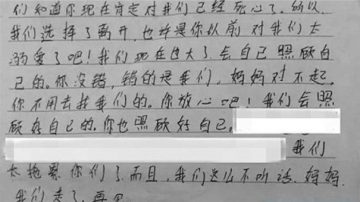 们知道你现在肯定对我们已经死心了，所以
我们选择了离开，也许是你以前对我们太
溺爱了吧！我们现在也大了会自己照顾自
己的。你没错，错的是我们，妈妈对不起。
你不用去找我们的。你放心吧！我们会照
顾好自己的。你也照顾好自己。
我们
太拖累你们了，而且，我们这么不听话，妈妈
我们走了，再见